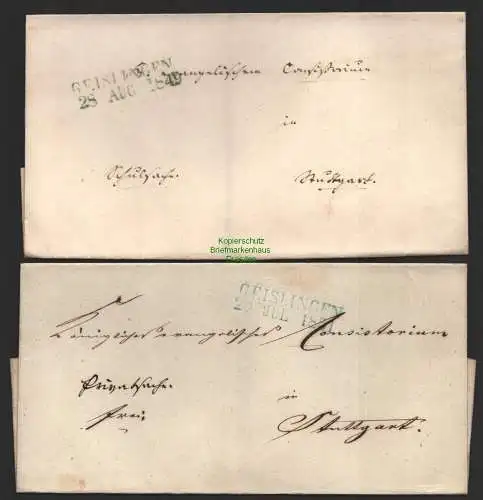 GEISLINGEN
28 AUG 1849
Evangelischem Consistorium
in
Schulsache. Stuttgart.
Kopierschutz
Briefmarkenhaus
GEISLINGEN
JUL
Königliches evangelisches Consistorium
Privatsache.
frei.
in
Stuttgart.